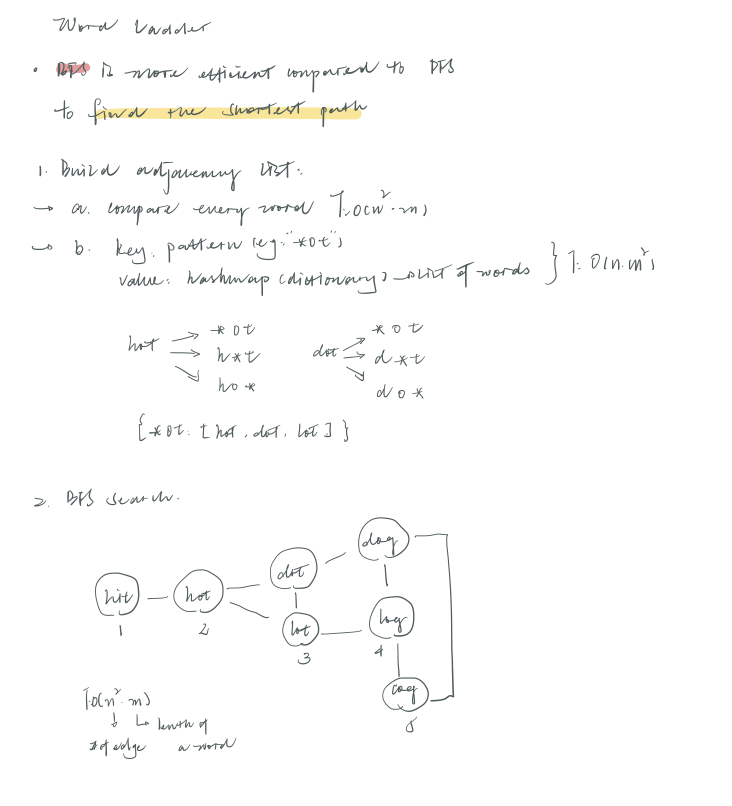 Word Ladder
• BFS is more efficient compared to DFS
to find the shortest path
1. Build adjacency list:
→ a. compare every word T: O(n²·m)
→ b. key: pattern (eg: "*ot")
value: hashmap (dictionary) → list of words } T: O(n·m²)
hot → *ot dot → *ot
h*t d*t
ho* do*
{*ot: [hot, dot, lot]}
2. BFS search.
dog
dot
hit hot
log
lot
1 2 3 4
cog
5
T: O(n²·m)
↓ ↳ length of
# of edge a word